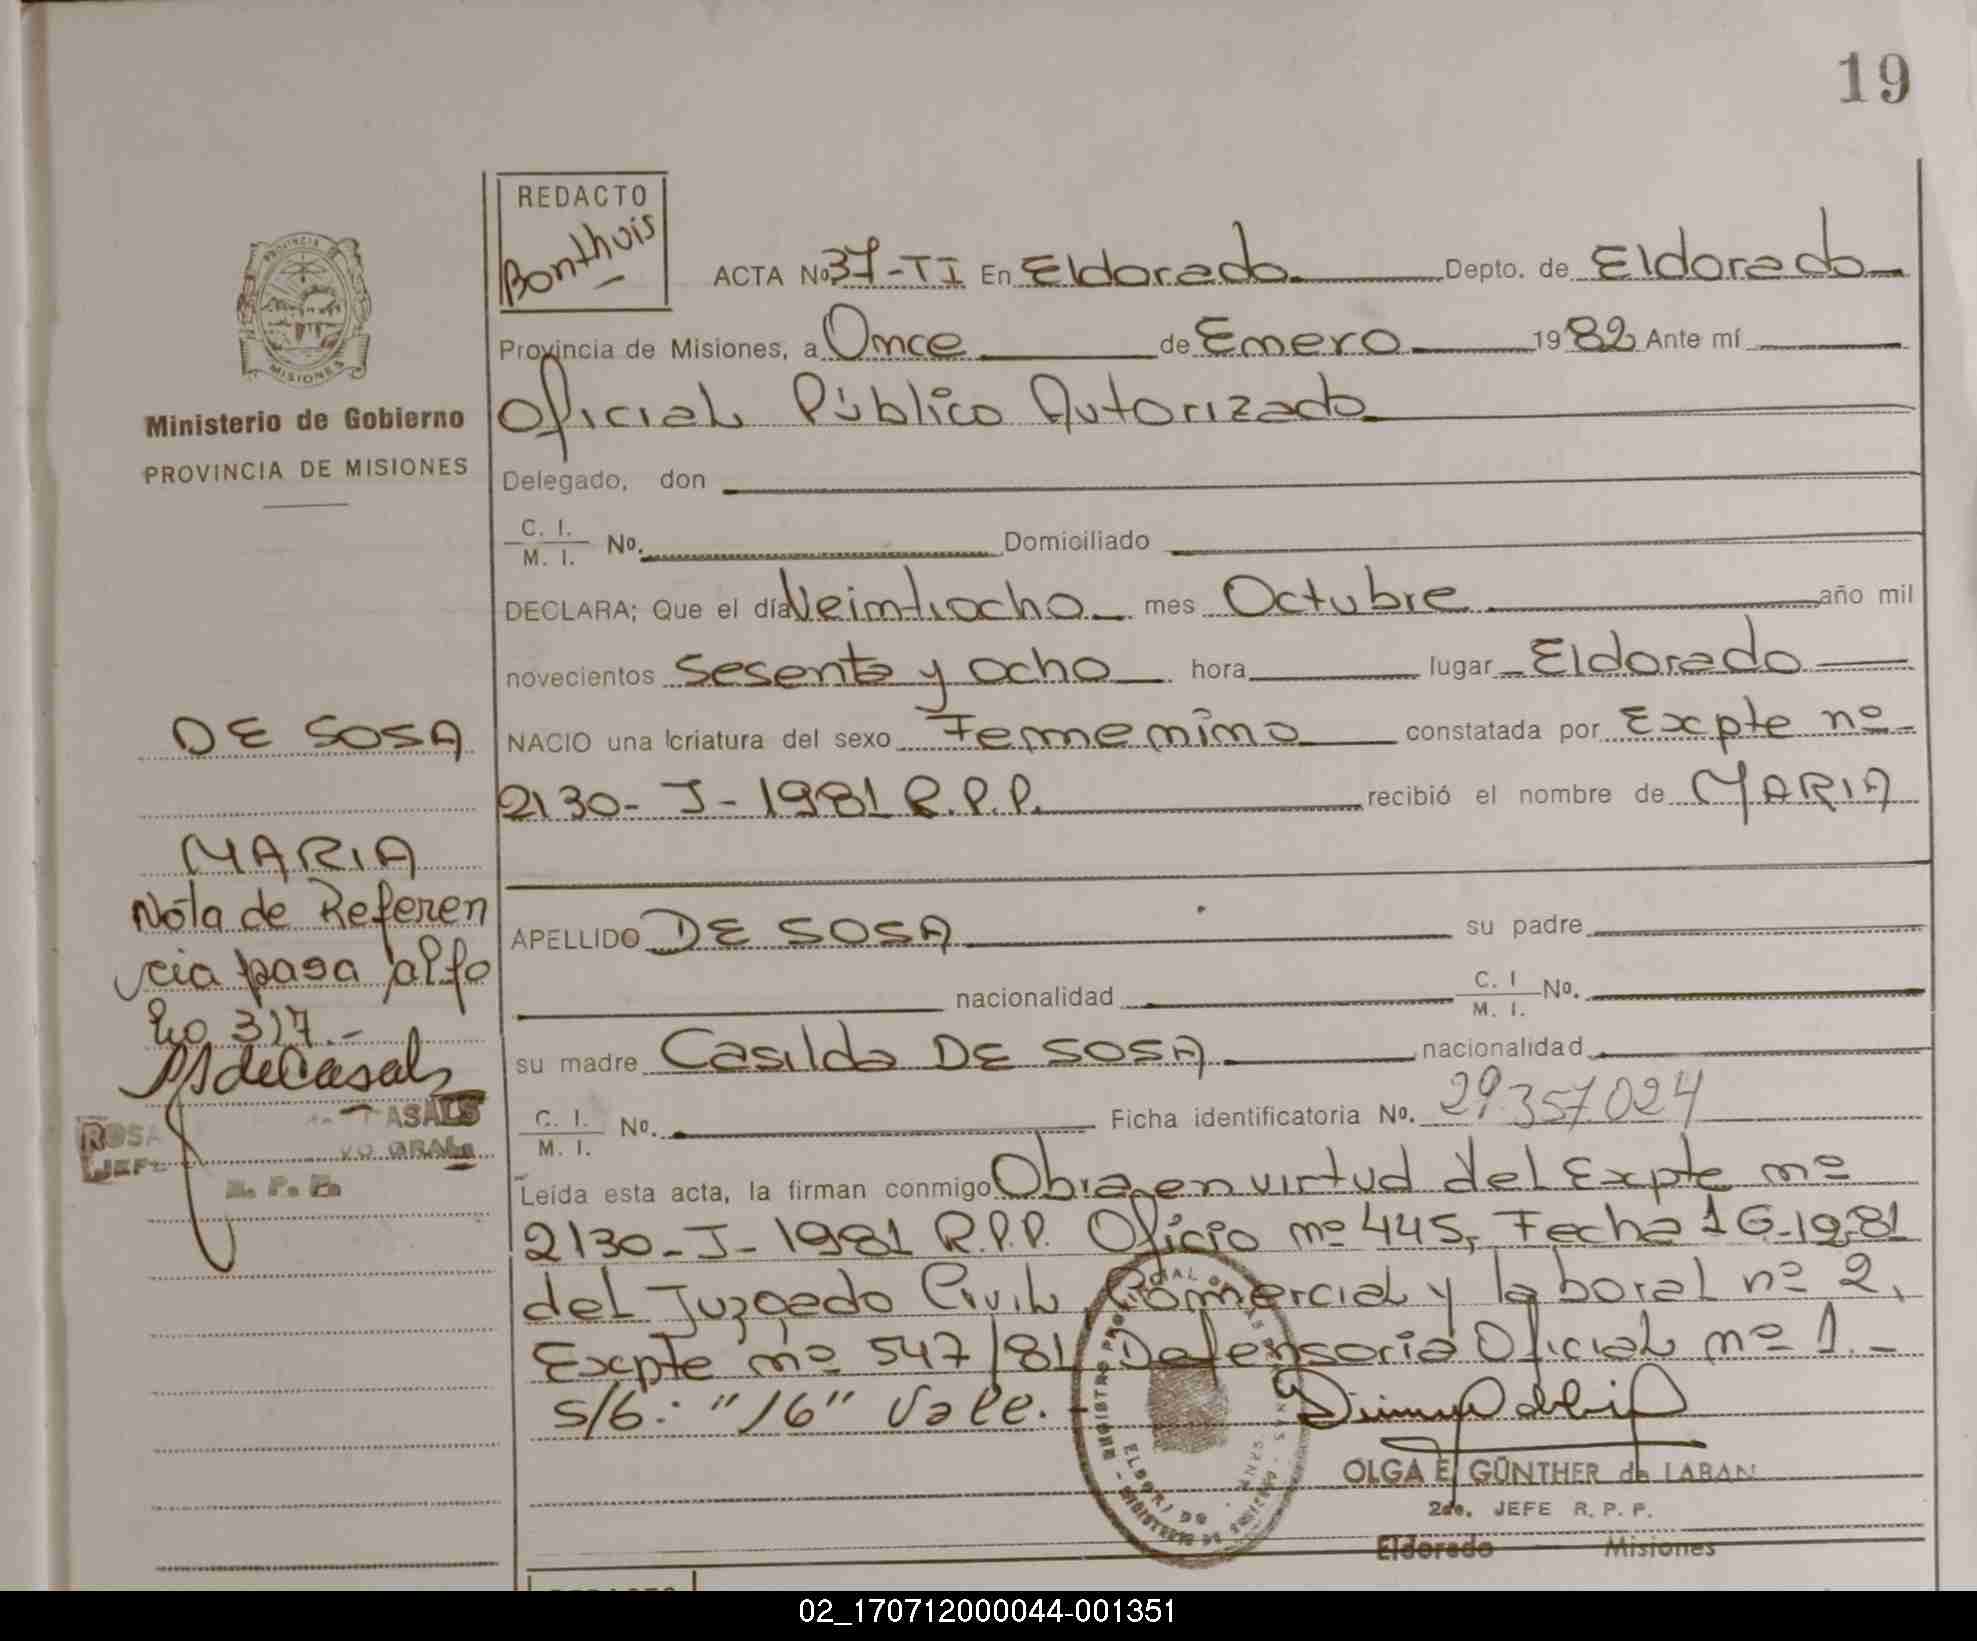 19
REDACTO
Bonthuis
ACTA No 37-TI En Eldorado Depto. de Eldorado
Provincia de Misiones, a Once de Enero 1982 Ante mí
Oficial Público Autorizado
Delegado, don
C. I.
M. I. No. Domiciliado
DECLARA; Que el día Veintiocho mes Octubre año mil
novecientos Sesenta y ocho hora lugar Eldorado
NACIO una criatura del sexo Femenino constatada por Excpte nº
2130-J-1981 R.P.P. recibió el nombre de MARIA
APELLIDO DE SOSA su padre
nacionalidad C. I No.
M. I.
su madre Casilda DE SOSA nacionalidad
C. I. No. Ficha identificatoria No. 29.357.024
M. I.
Leída esta acta, la firman conmigo Obra en virtud del Excpte nº
2130-J-1981 R.P.P. Oficio nº 445, Fecha 16-19-81
del Juzgado Civil, Comercial y laboral nº 2,
Excpte nº 547/81 Defensoria Oficial nº 1.-
s/b: "16" Vale.-
OLGA E. GÜNTHER de LABAN
2do. JEFE R. P. P.
Eldorado Misiones
PROVINCIA DE
MISIONES
Ministerio de Gobierno
PROVINCIA DE MISIONES
DE SOSA
MARIA
Nota de Referen
cia pasa al fo
lio 317.-
MdeCasals
ROSA ASALS
JEF GRAL
R. P. P.
02_170712000044-001351